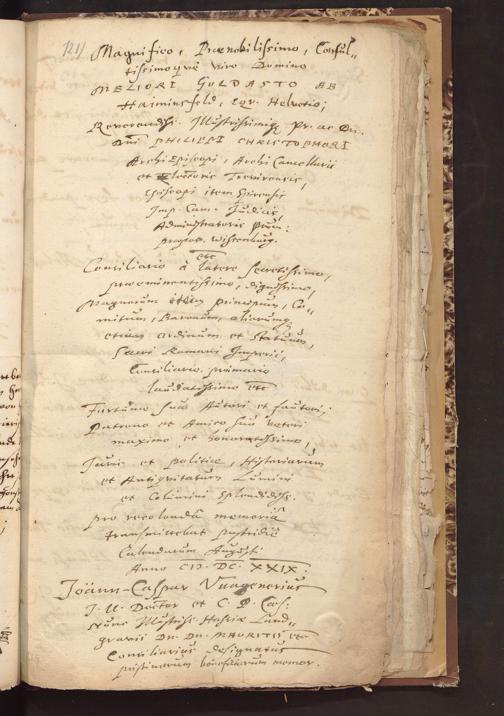 121
Magnifico, Praenobilissimo, Consul-
tissimoque viro Domino
MELIORI GOLDASTO AB
Haiminsfeld, Eqv. Helvetio;
Reverendiss. Illustrissimiq Pr. ac Dn.
Dni PHILIPPI CHRISTOPHORI
Archi Episcopi, Archi Cancellarii
et Electoris Trevirensis,
Episcopi item Spirensis
Imp. Cam. Judicis,
Administratoris Prum:
praeposit. Wissenburg.
etc
Consiliario à latere secretissimo,
praeeminentissimo, dignissimo,
Magnorum item principum, Co-
mitum, Baronum, aliorumq
etiam ordinum et Statuum,
Sacri Romani Imperii,
Consiliario primario
laudatissimo etc
Fortunae suae Autori et fautori;
Patrono et Amico suo veteri
maximo et honoratissimo,
Juris et politiae, Historiarum
et Antiquitatum Lumini
et Columini splendidiss.
pro recolenda memoria
transmittebat postridie
Calendarum Augusti
Anno CIƆ. DC. XXIX.
Joänn-Caspar Wagenerius
J. U. Doctor et C. P. Caes:
nunc Illustriss. Hassiae Land-
gravii Dn. Dn. MAURITII etc
Consiliarius designatus
pristinorum beneficiorum memor.